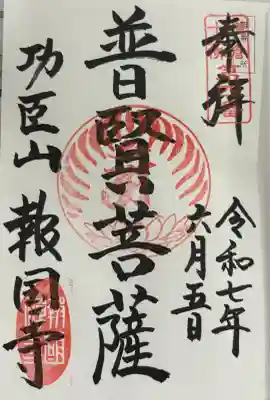 奉拝
令和七年
六月五日
普賢菩薩
功臣山 報国寺